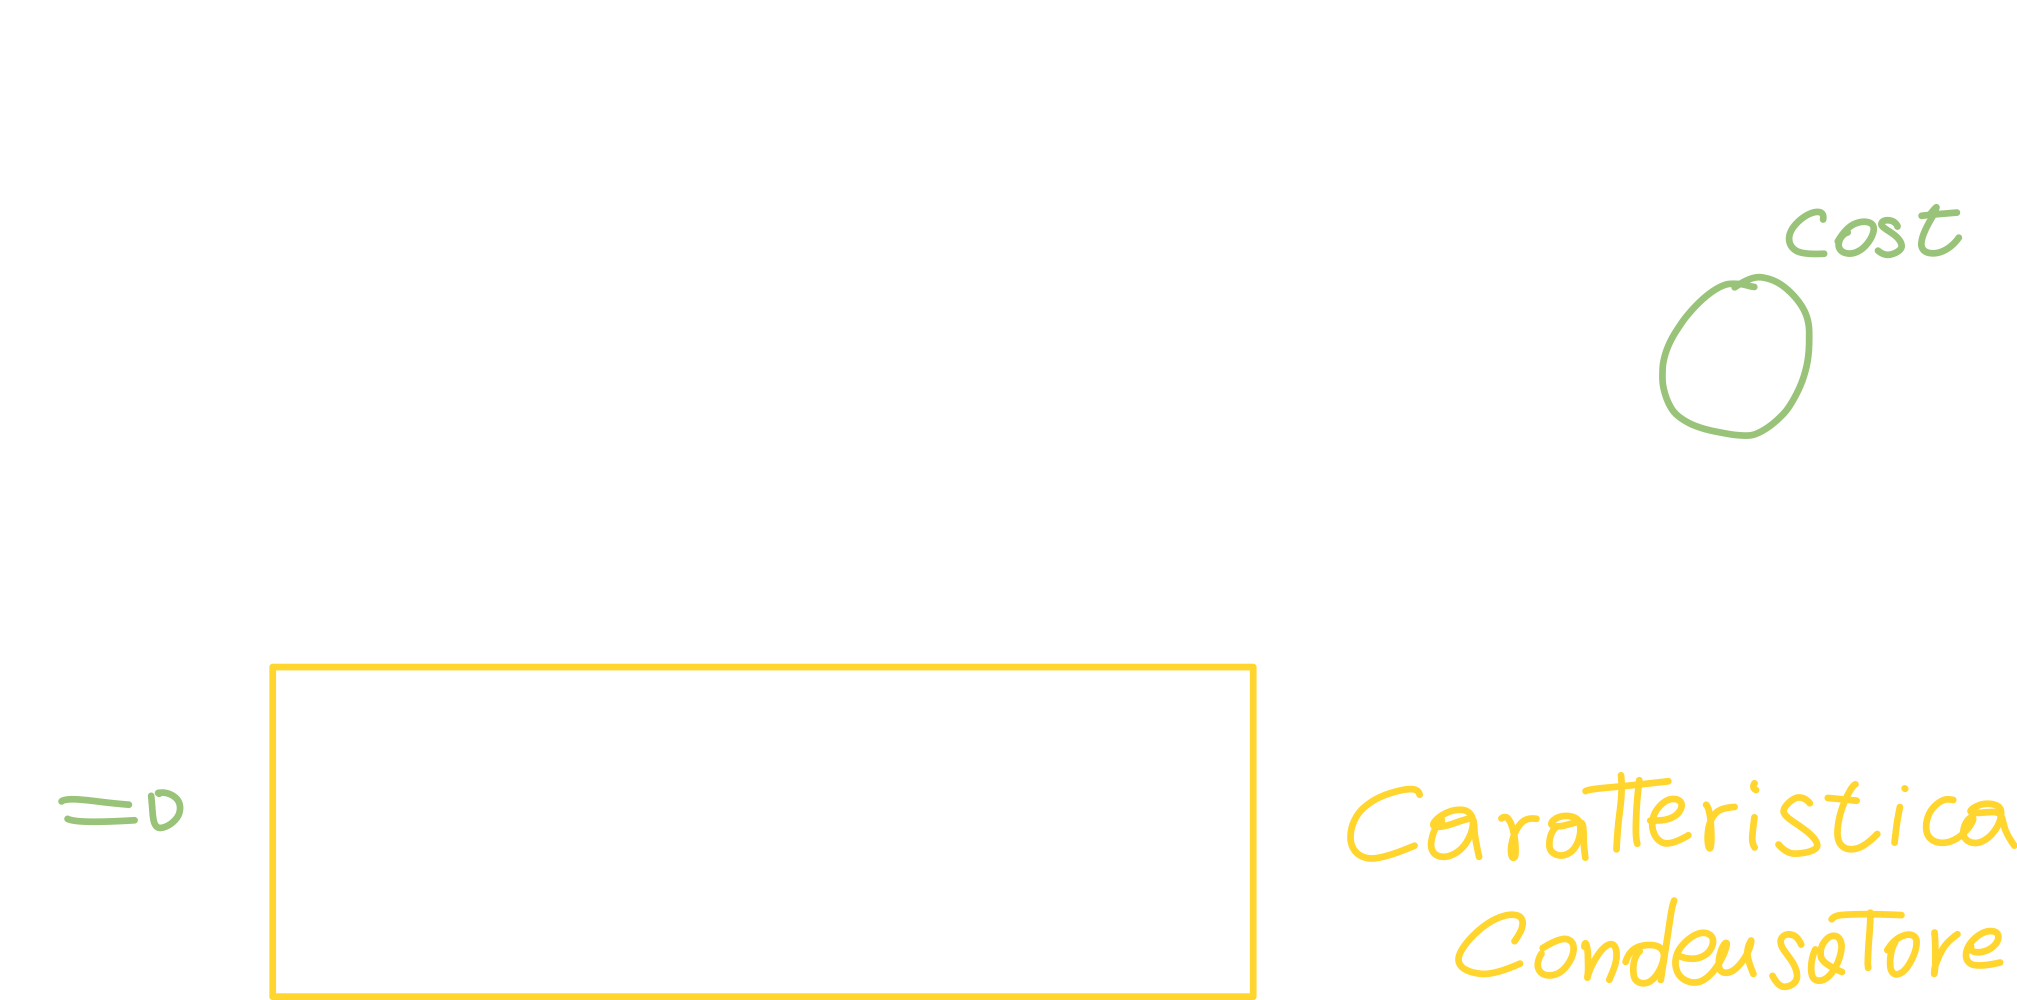 cost
=D
Caratteristica
Condensatore